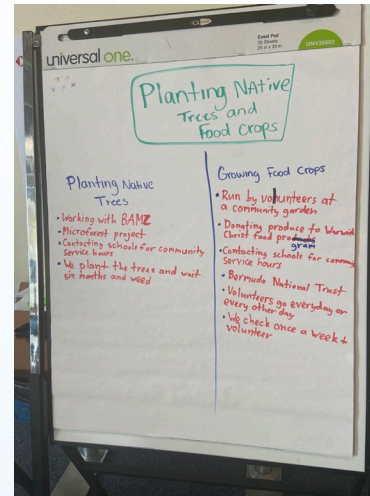 universal one.
Easel Pad
UNV35603
Planting NAtive
Trees and
Food Crops
Planting Native
Trees
• Working with BAMZ
• Microforest project
• Contacting schools for community
service hours
• We plant the trees and wait
six months and weed
Growing Food Crops
• Run by volunteers at
a community garden
• Donating produce to Warwick
Christ food pro
gram
• Contacting schools for community
service hours
• Bermuda National Trust
• Volunteers go everyday or
every other day
• We check once a week +
volunteer